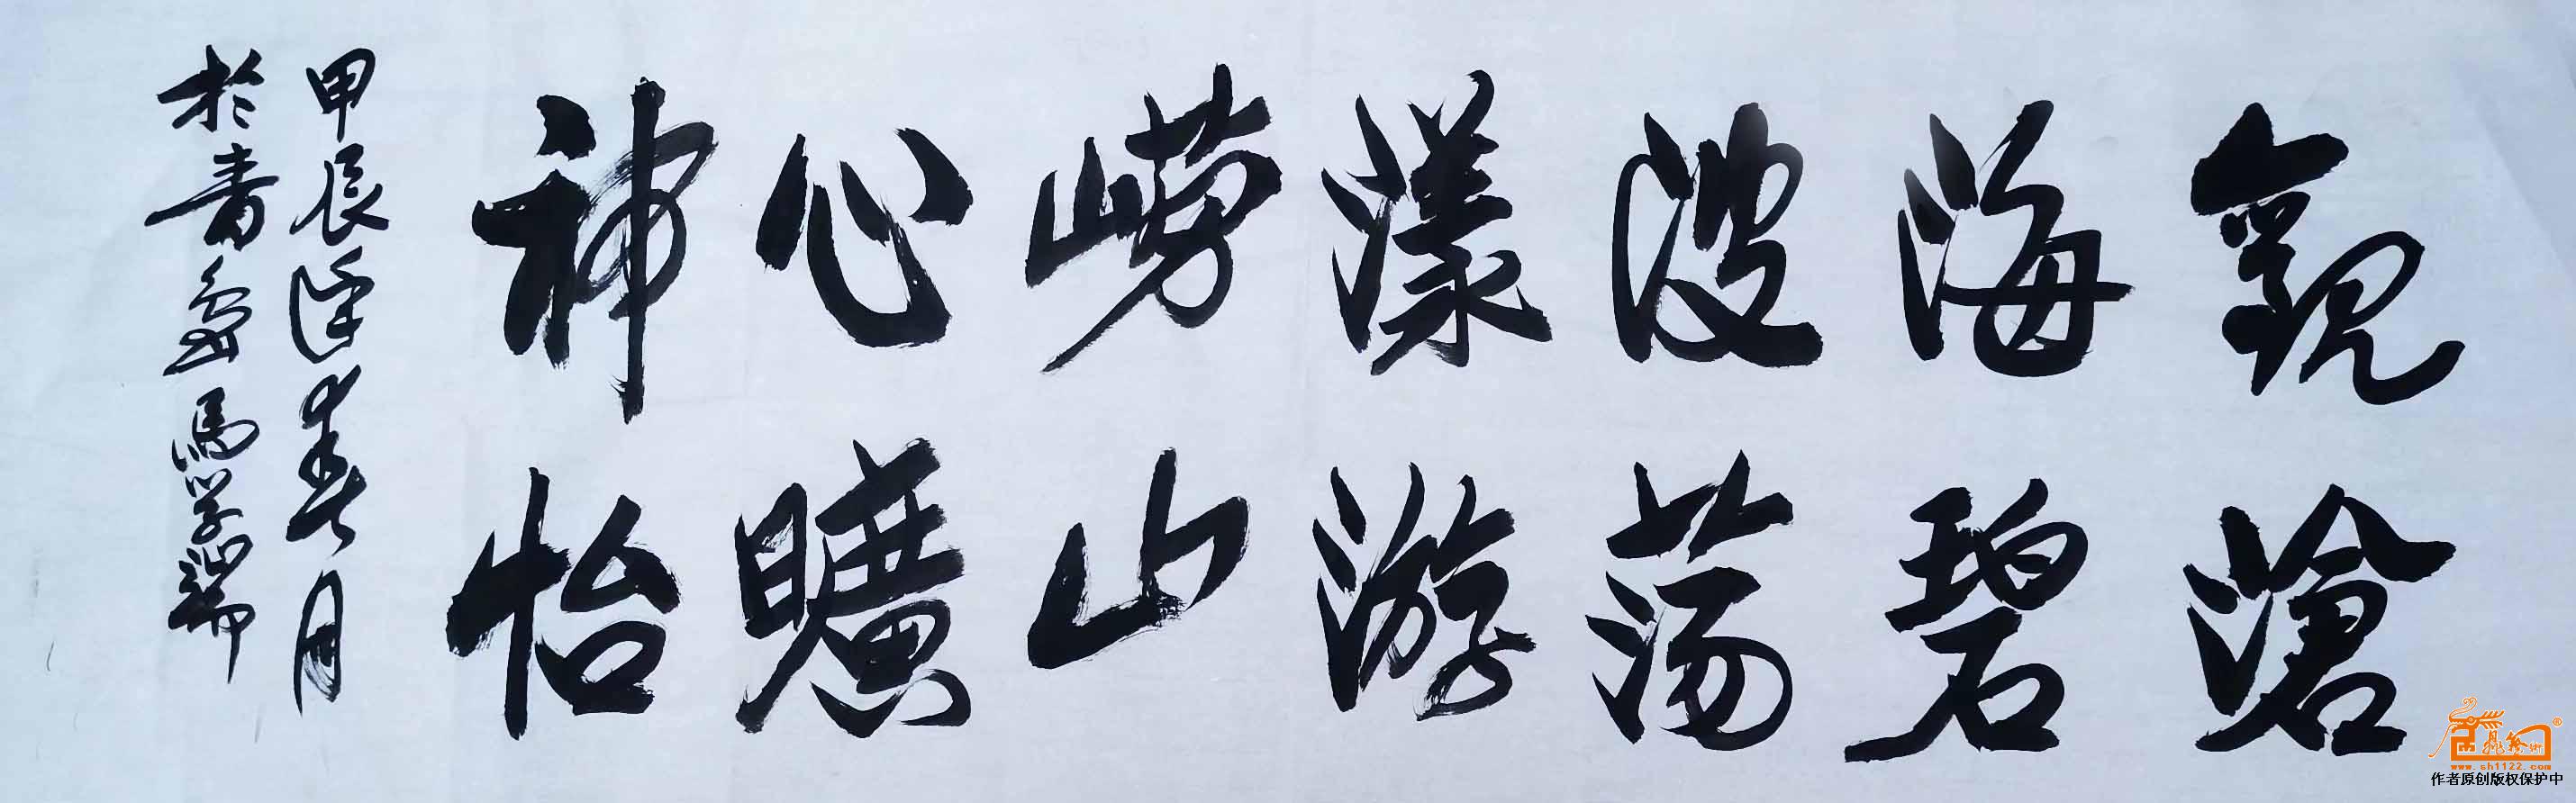 觀滄
海碧
波蕩
漾游
嶗山
心曠
神怡
甲辰年春月
於青島馬學瑞
www.sh1122.com
作者原创版权保护中